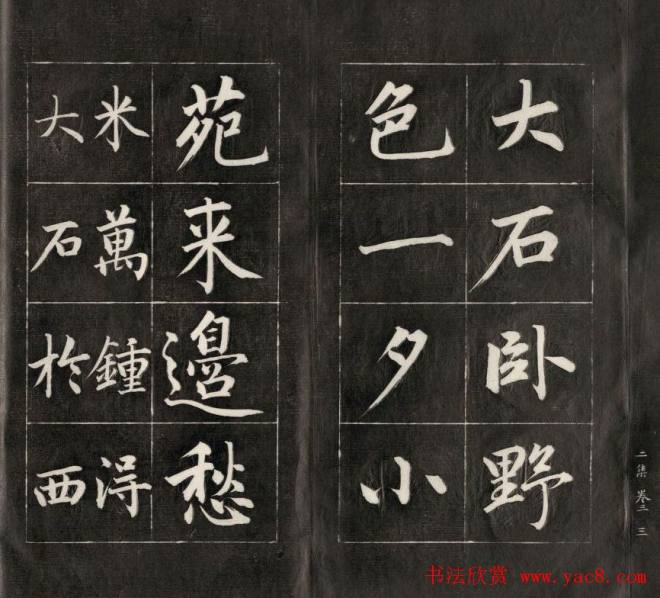 大石卧野
色一夕小
苑来邉愁
米萬鍾得
大石於西
二集 卷三 三
书法欣赏 www.yac8.com